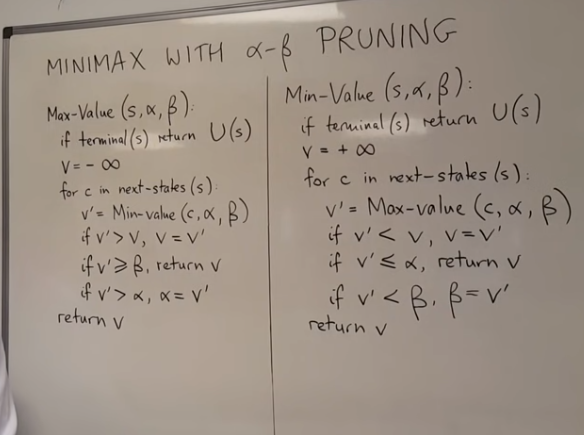 MINIMAX WITH α-β PRUNING
Max-Value (s, α, β):
if terminal(s) return U(s)
v = - ∞
for c in next-states (s):
v' = Min-value (c, α, β)
if v' > v, v = v'
if v' ≥ β, return v
if v' > α, α = v'
return v
Min-Value (s, α, β):
if terminal(s) return U(s)
v = + ∞
for c in next-states (s):
v' = Max-value (c, α, β)
if v' < v, v = v'
if v' ≤ α, return v
if v' < β, β = v'
return v